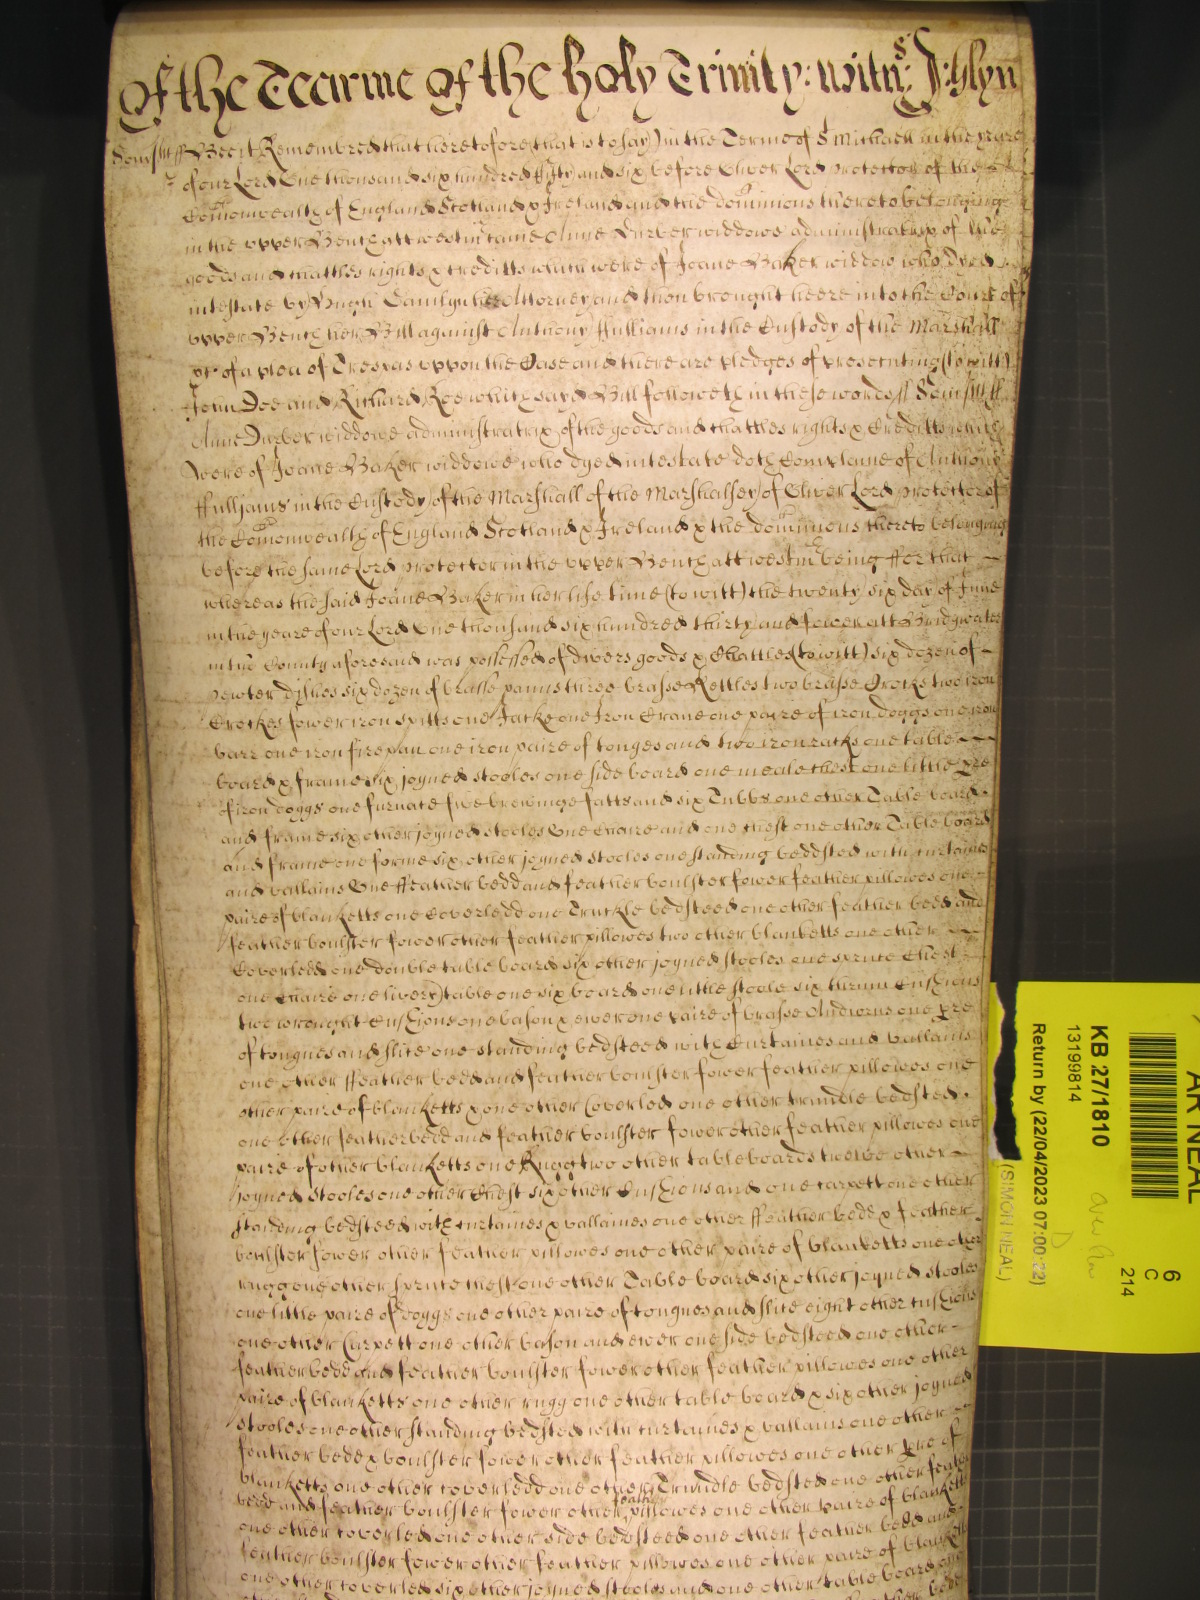 Of the Tearme Of the holy Trinity: witns: J: Glyn
Som̃sett ss Bee it Remembred that heretofore (that is to say) in the Terme of St Michaell in the yeare
of our Lord One thousand six hundred fifty and six before Oliver Lord protector of the
Com̃onwealth of England Scotland & Ireland and the dom̃inions thereto belonging
in the upper Bench att westmr came Anne Durber widdowe administratrix of the
goods and chattles rights & creditts which were of Joane Baker widdow who dyed
intestate by Hugh her Attorney and then brought heere into the Court of
upper Bench her Bill against Anthony ffulljams in the Custody of the Marshall
&c of a plea of Trespas uppon the Case and there are pledges of prosecuting (to witt)
John Doe and Richard Roe which said Bill followeth in these words ss Som̃sett ss
Anne Durber widdowe administratrix of the goods and chattles rights & Creditts which
were of Joane Baker widdowe who dyed intestate doth Complaine of Anthony
ffulljams in the Custody of the Marshall of the Marshalsey of Oliver Lord protector of
the Com̃onwealth of England Scotland & Ireland & the dom̃inions thereto belonging
before the same Lord protector in the upper Bench att westmr being ffor that
whereas the said Joane Baker in her life time (to witt) the twenty six day of June
in the yeare of our Lord One thousand six hundred thirty and fower att Bridgwater
in the County aforesaid was possessed of divers goods & Chattles (to witt) six dozen of
pewter dishes six dozen of brasse panns three brasse Kettles two brasse Crocks two iron
Crockes fower iron spitts one Jacke one Iron Crane one paire of iron doggs one iron
barr one iron firepan one iron paire of tonges and two iron racks one table
board & frame six joyned stooles one side board one meale chest one little pre
of iron doggs one furnace five brewinge fatts and six Tubbs one other Table board
and frame six other joyned stooles One Chaire and one chest one other Table board
and frame one forme six other joyned stooles one standing beddsted with curtaines
and vallains One ffeather bedd and feather boulster fower feather pillowes one
paire of blanketts one Coverledd one Truckle bedsteed one other feather bedd and
feather boulster fower other feather pillowes two other blanketts one other
Coverledd one double table board six other joyned stooles one spruce Chest
one Chaire one livery table one six board one little stoole six thrum Cushions
two wrought Cushions one bason & ewer one paire of brasse Andirons one pre
of tongues and slice one standing bedsteed with Curtaines and vallains
one other ffeather bedd and feather boulster fower feather pillowes one
other paire of blanketts & one other Coverled one other trundle bedsted
one other featherbedd and feather boulster fower other feather pillowes one
paire of other blanketts one Rugg two other tableboards twelve other
joyned stooles one other Chest six other Cushions and one carpett one other
standing bedsteed with curtaines & vallaines one other ffeather bedd & feather
boulster fower other feather pillowes one other paire of blanketts one other
rugg one other spruce chest one other Table board six other joyned stooles
one little paire of doggs one other paire of tongues and slice eight other cushions
one other Carpett one other bason and ewer one side bedsteed one other
featherbedd and feather boulster fower other feather pillowes one other
paire of blanketts one other rugg one other table board & six other joyned
stooles one other standing bedsted with curtaines & vallains one other
feather bedd & boulster fower other feather pillowes one other pre of
blanketts one other coverledd one other Trundle bedsted one other feather
bedd and feather boulster fower other feather pillowes one other paire of blanketts
one other coverled one other side bedsteed one other feather bedd and
feather boulster fower other feather pillowes one other paire of blanketts
one other coverled six other joyned stooles and one other table board one
AR NEAL
6
C
214
KB 27/1810
13199814
Return by (22/04/2023 07:00:22)
(SIMON NEAL)